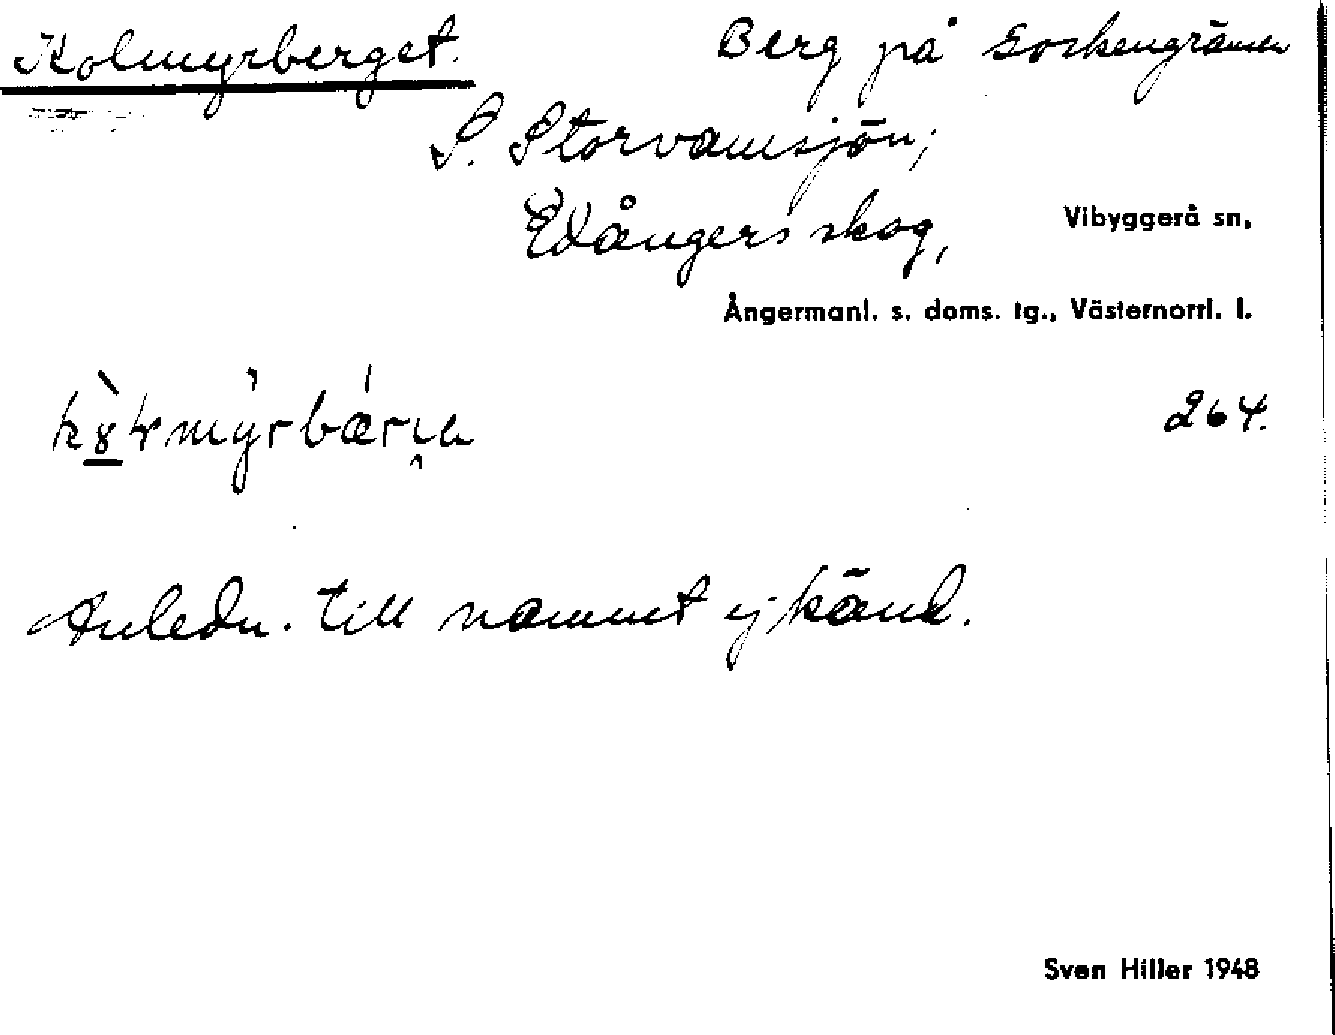 Kolmyrberget. Berg på Sockengränsen
S. Storvamsjön;
Edångers skog, Vibyggerå sn,
Ångermanl. s. doms. tg., Västernorrl. l.
264.
Anledn. till namnet ej känd.
Sven Hiller 1948